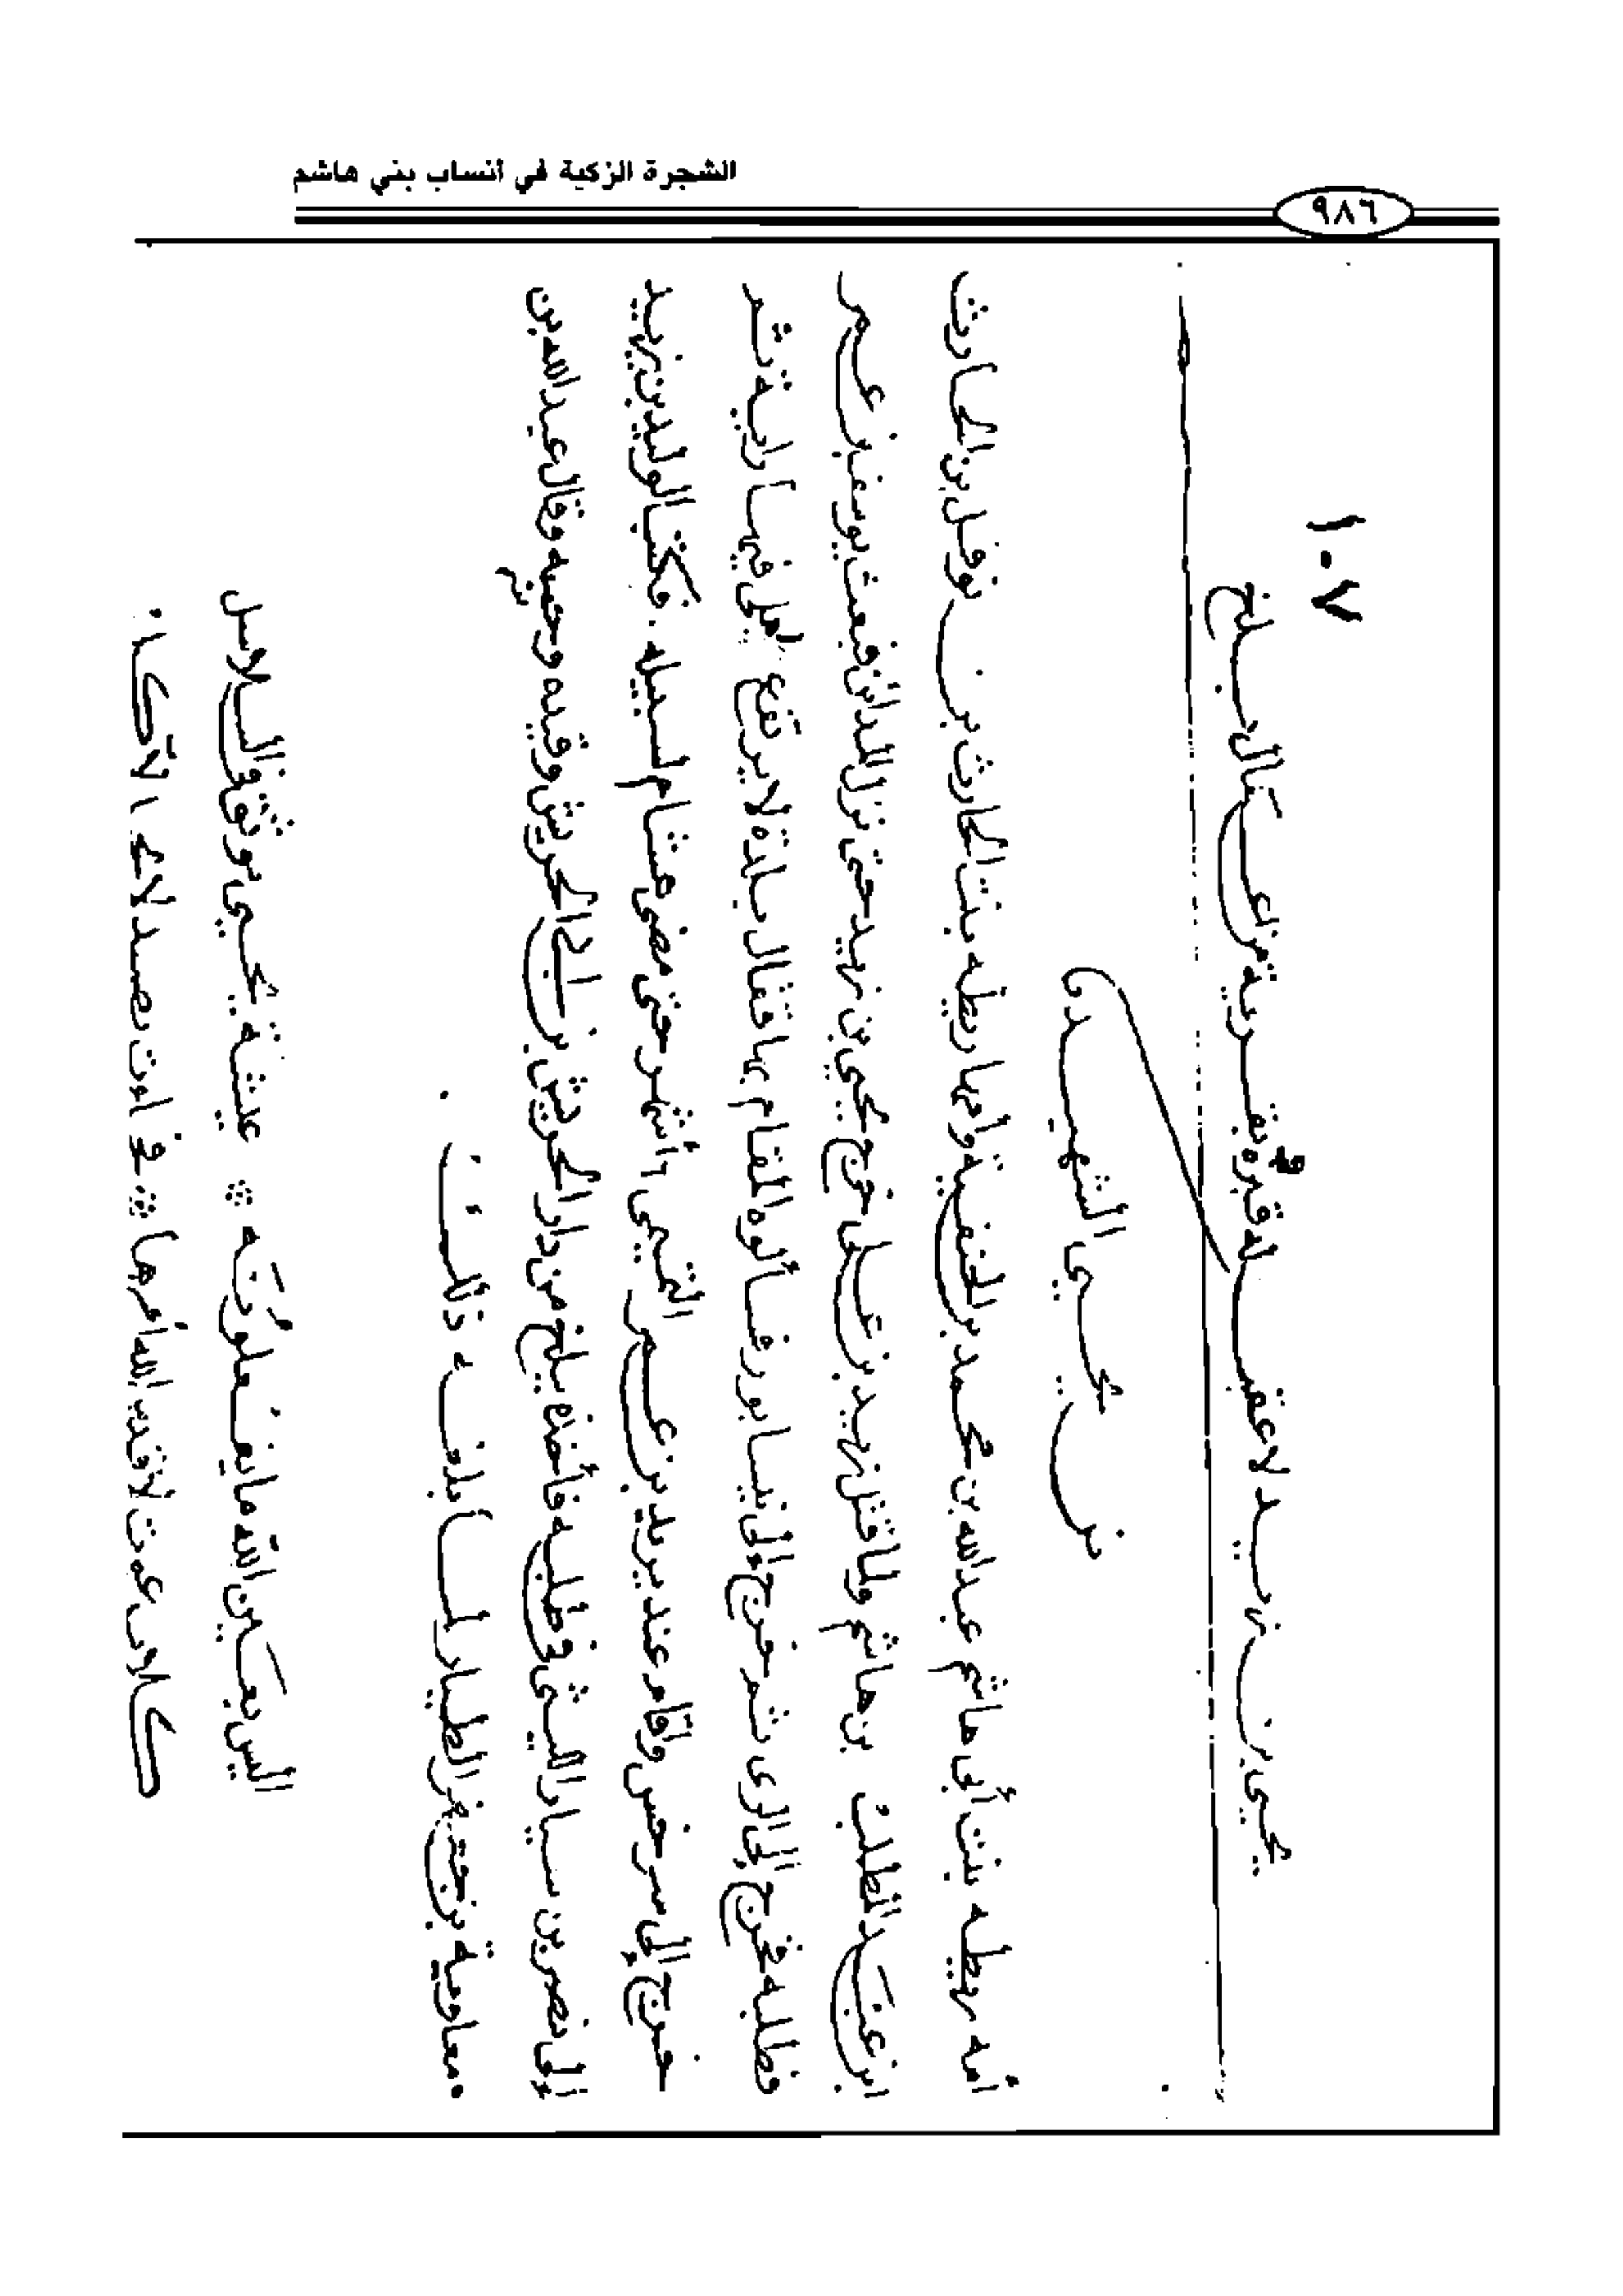 الشجرة الزكية في أنساب بني هاشم
٩٨٦
١٠٧
يحيى بن زيد لا عقب له قبره بقرية من أعمال بلخ
بن يحيى الشهيد
أمه ريطه بنت أبي هاشم عبد الله بن محمد بن الحنفية وأمها ريطه بنت الحارث بن نوفل بن الحارث
ابن عبد المطلب بن هاشم ولما قتل زيد بن علي خرج يحيى بن زيد حتى نزل المدائن فبعث يوسف بن عمر
فطلبه فخرج إلى الري ثم خرج إلى نيسابور فسألوه المقام بها فقال بلدة لا يرتفع لعلي فيها راية ثم
خرج إلى سرخس وأقام عند يزيد بن عمر التيمي أشهر حتى مضى هشام لسبيله. فكتب الوليد بن يزيد
إلى نصر بن سيار الليثي في طلبه فأخذه ببلخ من دار الحريش بن أبي الحريش وقيده وحبسه فقال عبد الله بن
معاوية بن جعفر الطيار لما بلغه ذلك
أليس بعين الله ما يفعلونه * عشية يحيى موثق في السلاسل
كلاب عوت لا قدس الله أمرها *